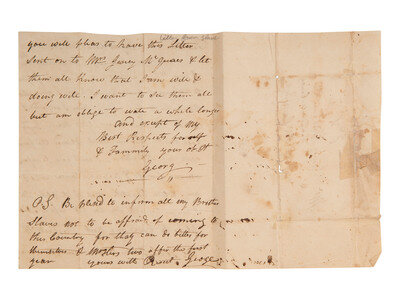 Letter from Slave
you will pleas to have this Letter
Sent on to Mrs Jeney McQuaes & let
them all know that I am well &
doing well. I want to see them all
but am oblige to wate a while longer
and except of My
Best Respects for self
& Fammily yours ob St
George
P.S. Be pleasd to inform all my Brother
Slaves not to be affraid of coming to
this Country for thay can do bettes for
themselves after the first
year yours with Resct. George